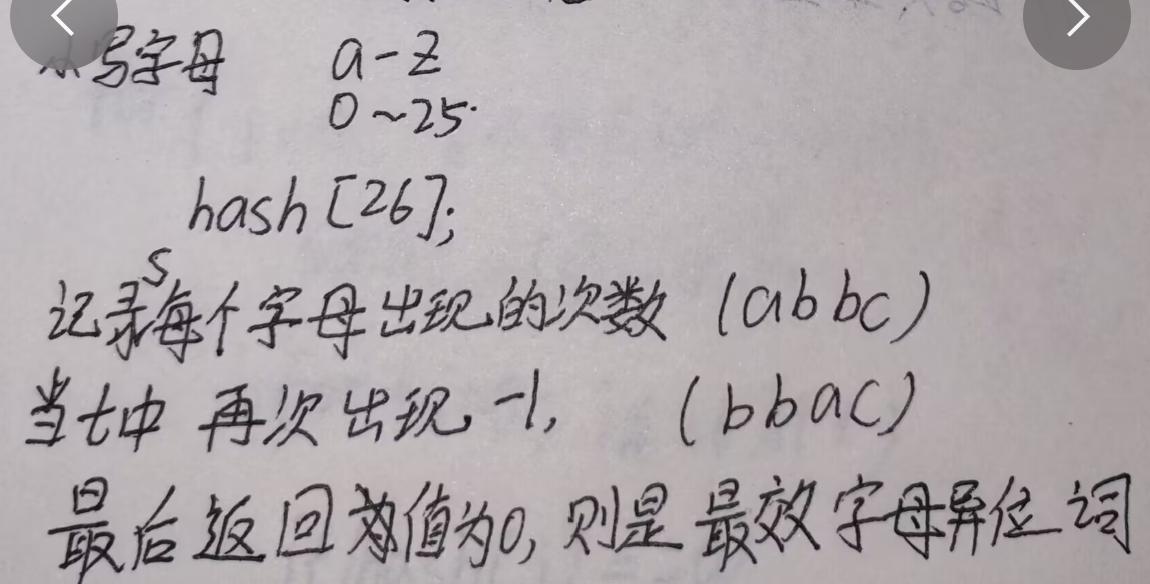 小写字母 a-z
0~25.
hash[26];
记录s每个字母出现的次数 (abbc)
当t中 再次出现 -1, (bbac)
最后返回值为0, 则是最效字母异位词